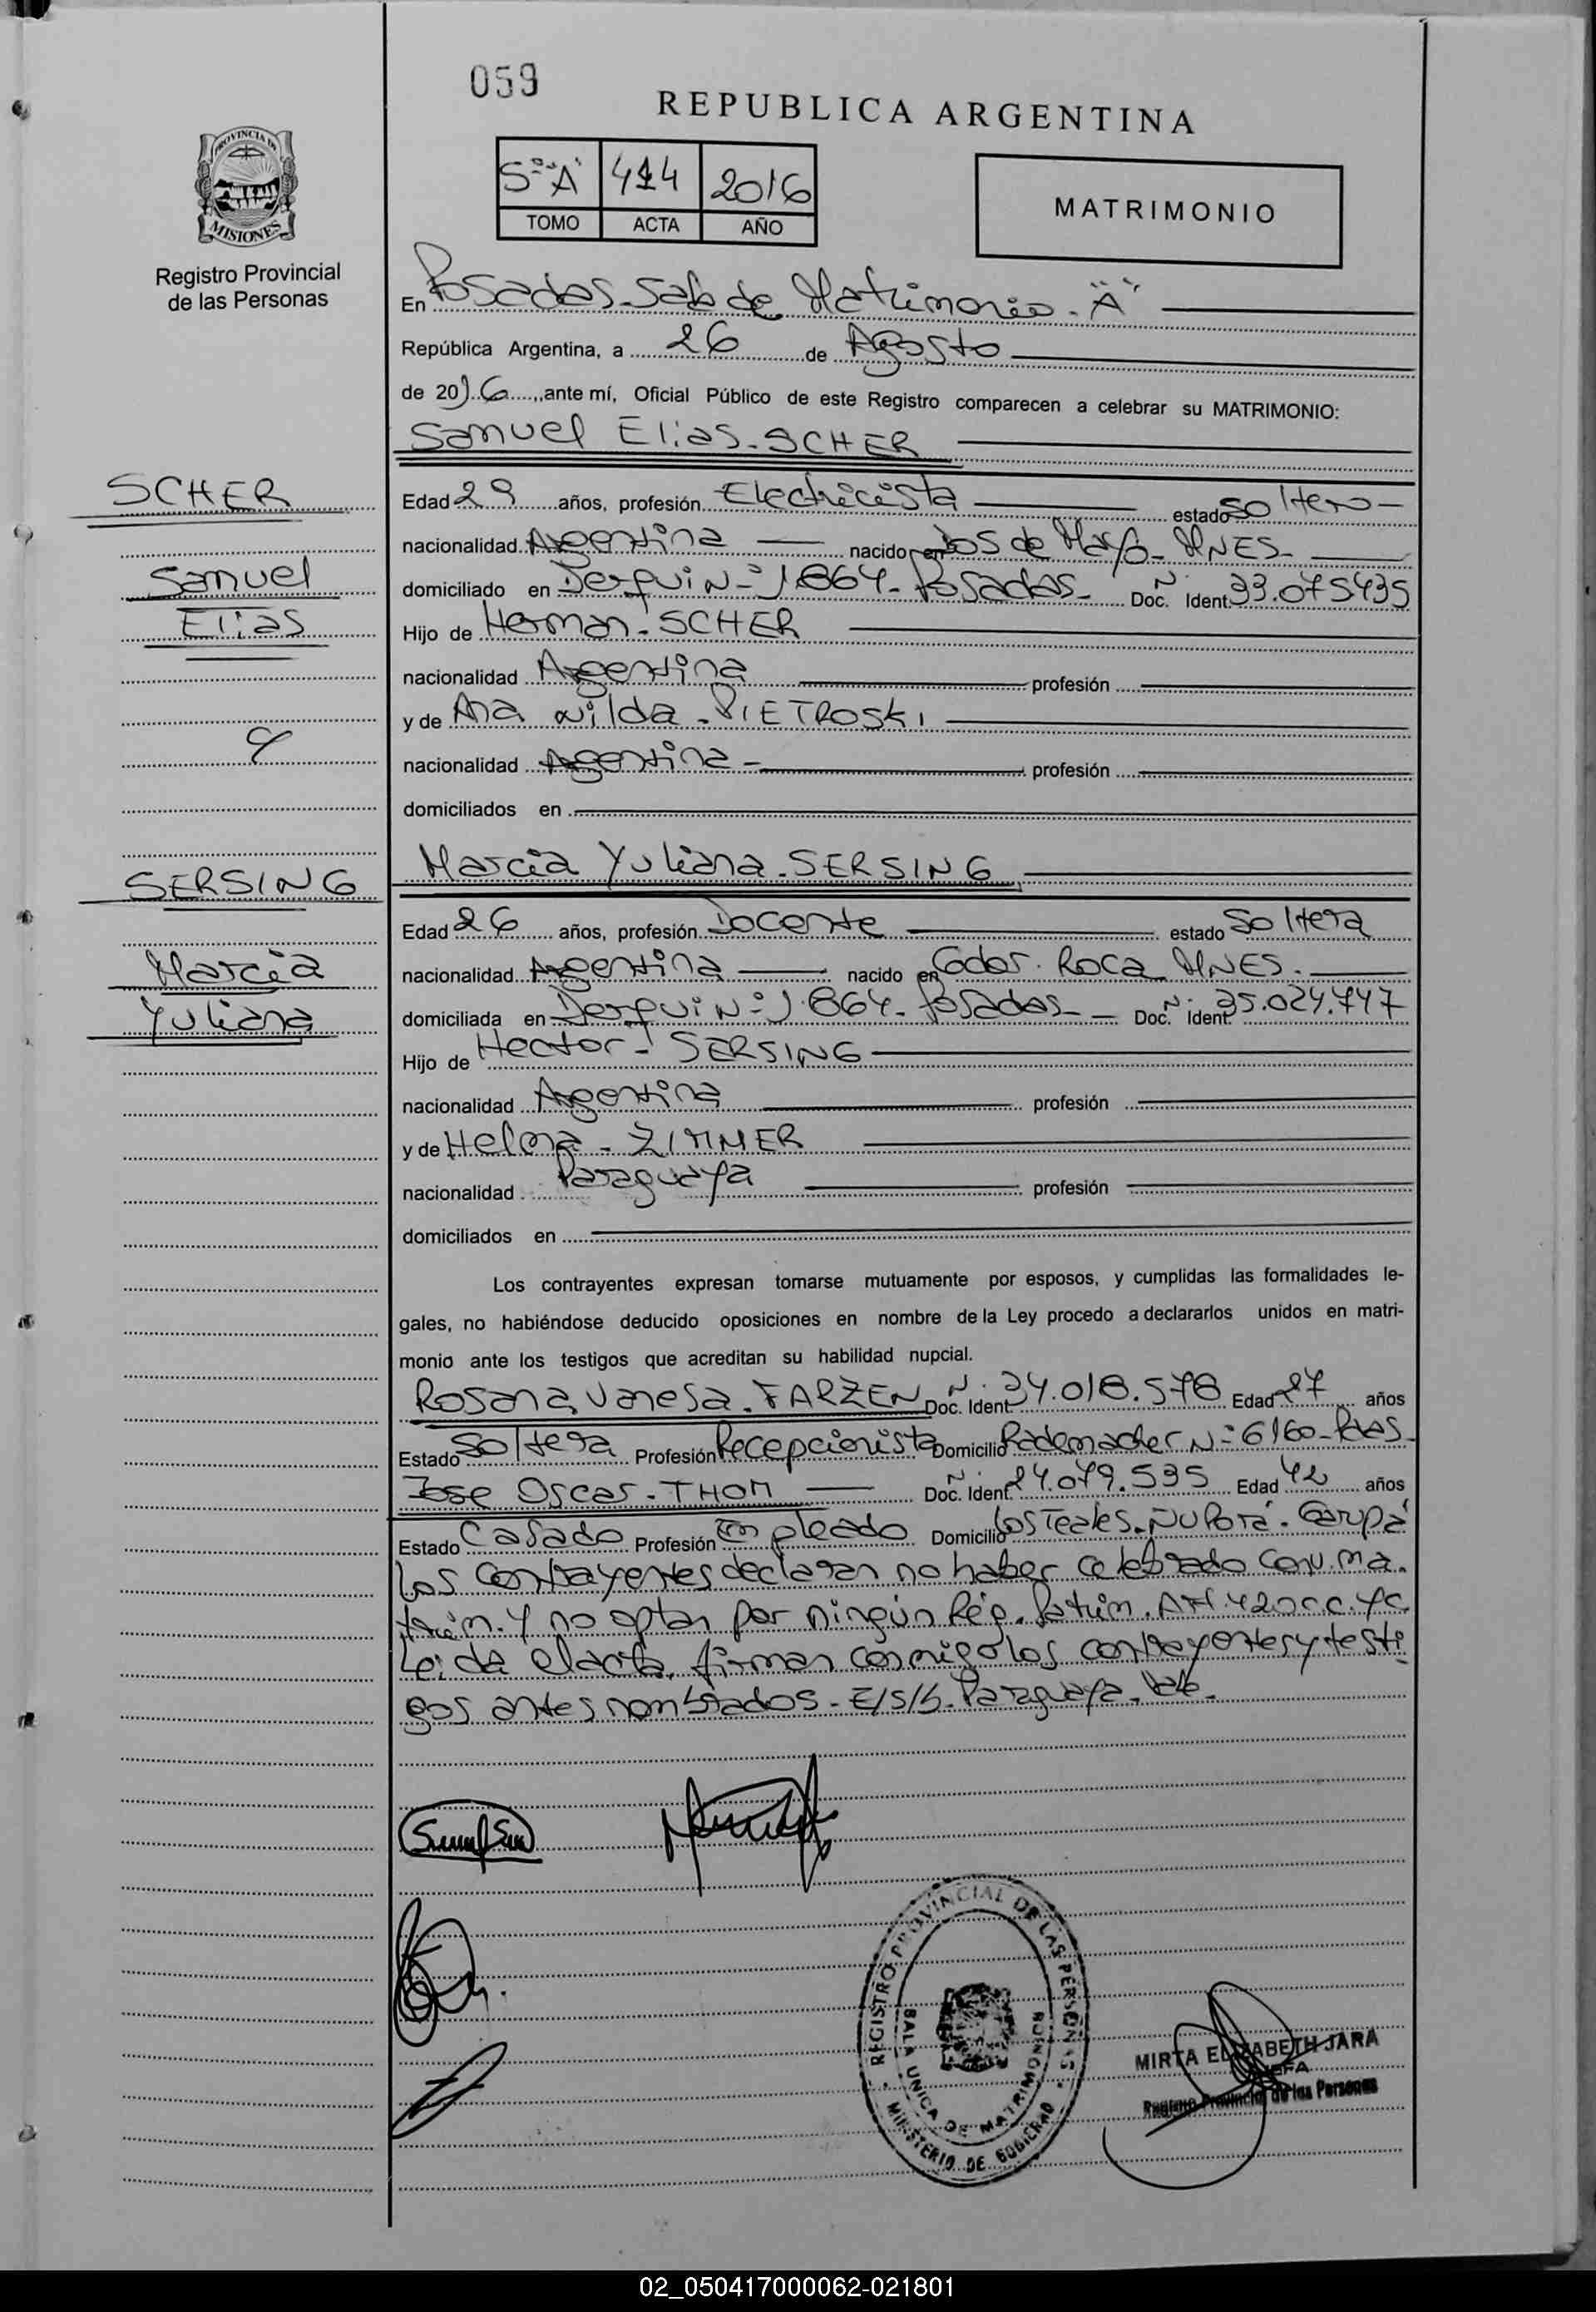 059
REPUBLICA ARGENTINA
PROVINCIA DE
MISIONES
Registro Provincial
de las Personas
Sº "A" 414 2016
TOMO ACTA AÑO
MATRIMONIO
En Posadas - Sala de Matrimonio - "A"
República Argentina, a 26 de Agosto
de 2016, ante mí, Oficial Público de este Registro comparecen a celebrar su MATRIMONIO:
Samuel Elias - SCHER
SCHER
Samuel
Elias
Edad 29 años, profesión Electricista estado soltero
nacionalidad Argentina nacido en Dos de Mayo - MNES -
domiciliado en Derqui Nº 1864 - Posadas - Doc. Ident. Nº 33.075435
Hijo de Herman - SCHER
nacionalidad Argentina profesión
y de Ana Nilda - PIETROSKI
nacionalidad Argentina - profesión
domiciliados en
y
SERSING
Marcia
Yuliana
Marcia Yuliana - SERSING
Edad 26 años, profesión Docente estado soltera
nacionalidad Argentina nacido en Gdor. Roca - MNES -
domiciliada en Derqui Nº 1864 - Posadas - Doc. Ident. Nº 35.024.747
Hijo de Hector - SERSING
nacionalidad Argentina profesión
y de Helma - ZIMMER
nacionalidad Paraguaya profesión
domiciliados en
Los contrayentes expresan tomarse mutuamente por esposos, y cumplidas las formalidades le-
gales, no habiéndose deducido oposiciones en nombre de la Ley procedo a declararlos unidos en matri-
monio ante los testigos que acreditan su habilidad nupcial.
Rosana Vanesa - FARZEN Doc. Ident. Nº 34.018.578 Edad 27 años
Estado soltera Profesión Recepcionista Domicilio Rademacher Nº 6160 - Pdas -
Jose Oscar - THOM Doc. Ident. Nº 24.079.535 Edad 42 años
Estado Casado Profesión Empleado Domicilio Los Teales - Ñu Porá - Garupá
Los contrayentes declaran no haber celebrado conv. ma-
trim. y no optan por ningún Rég. Patrim. Art. 420 c.c. y c.
Leida el acta, firman conmigo los contrayentes y testi
gos antes nombrados - E/S/b - Paraguaya - Vale -
REGISTRO PROVINCIAL DE LAS PERSONAS
SALA UNICA DE MATRIMONIOS
MINISTERIO DE GOBIERNO
MIRTA ELIZABETH JARA
JEFA
Registro Provincial de las Personas
02_050417000062-021801